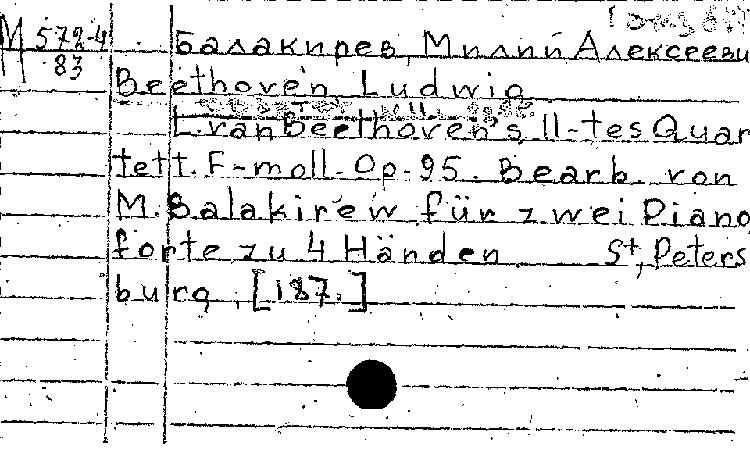 М 572-4
83
Балакирев, Милий Алексееви
Beethoven Ludwig
L. van Beethoven's 11-tes Quar
tett. F-moll. Op. 95. Bearb. von
M. Balakirew für zwei Piano
forte zu 4 Händen St, Peters
burg, [187.]